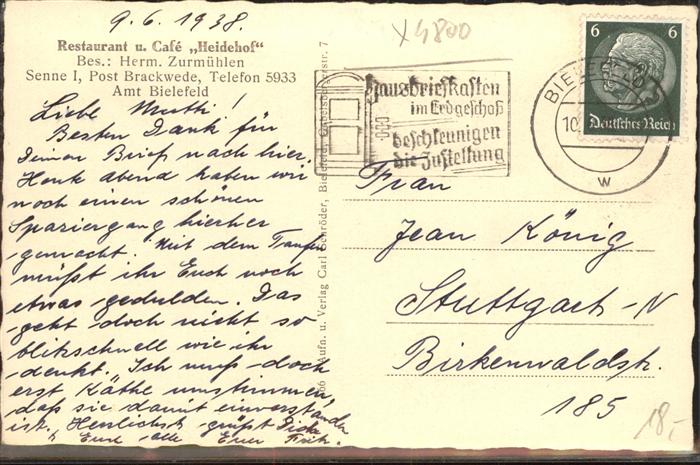 9.6.1938.
Restaurant u. Café „Heidehof"
Bes.: Herm. Zurmühlen
Senne I, Post Brackwede, Telefon 5933
Amt Bielefeld
Liebe Mutti!
Besten Dank für
Deinen Brief nach hier.
Heute abend haben wir
noch einen schönen
Spaziergang hierher
gemacht. Mit dem Taufen
müßt ihr Euch noch
etwas gedulden. Das
geht doch nicht so
blitzschnell wie ihr
denkt. Ich muß doch
erst Käthe umstimmen,
daß sie damit einverstanden
ist. Herzlichst grüßt Dich
u. Euch alle Euer Fritz.
Aufn. u. Verlag Carl Schröder, Bielefeld, 7
x4800
Hausbriefkasten
im Erdgeschoß
beschleunigen
die Zustellung
BIELEFELD
10
w
6 6
Deutsches Reich
Frau
Jean König
Stuttgart-N
Birkenwaldstr.
185
18,-